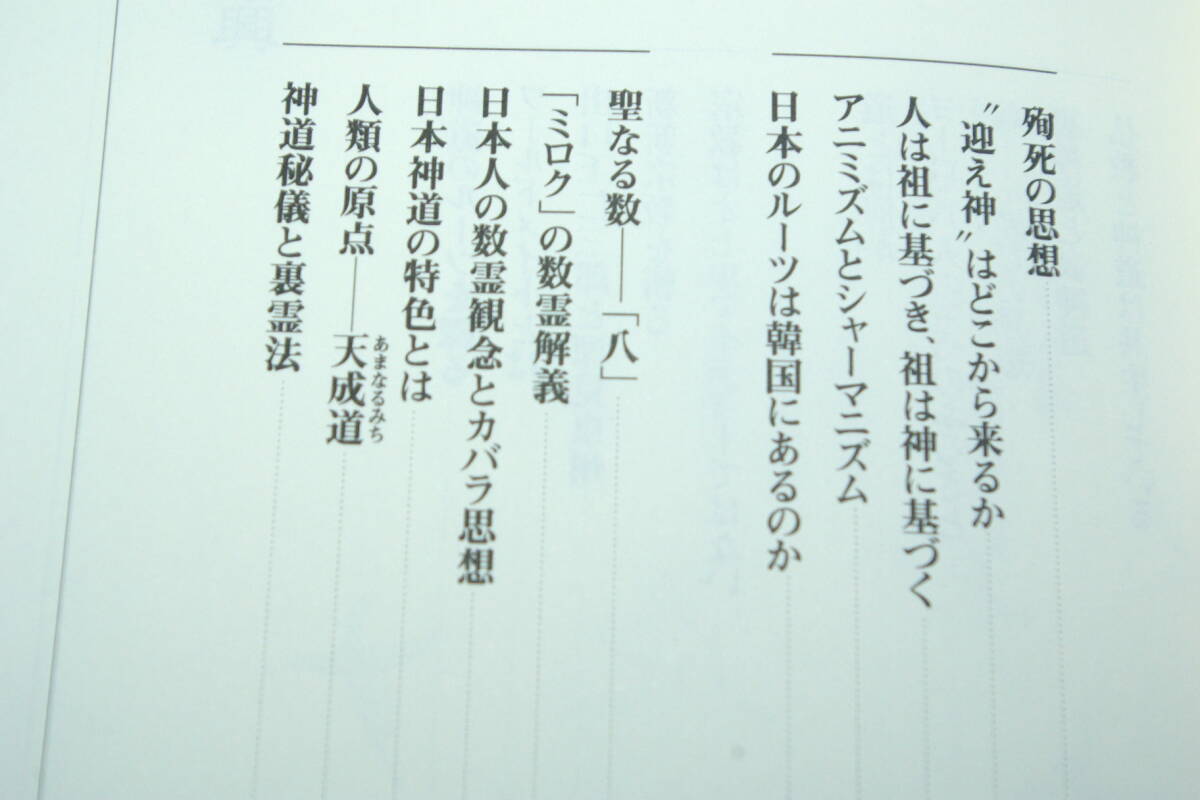 殉死の思想
〝迎え神〟はどこから来るか
人は祖に基づき、祖は神に基づく
アニミズムとシャーマニズム
日本のルーツは韓国にあるのか
聖なる数――「八」
「ミロク」の数霊解義
日本人の数霊観念とカバラ思想
日本神道の特色とは
人類の原点――天成道
あまなるみち
神道秘儀と裏霊法